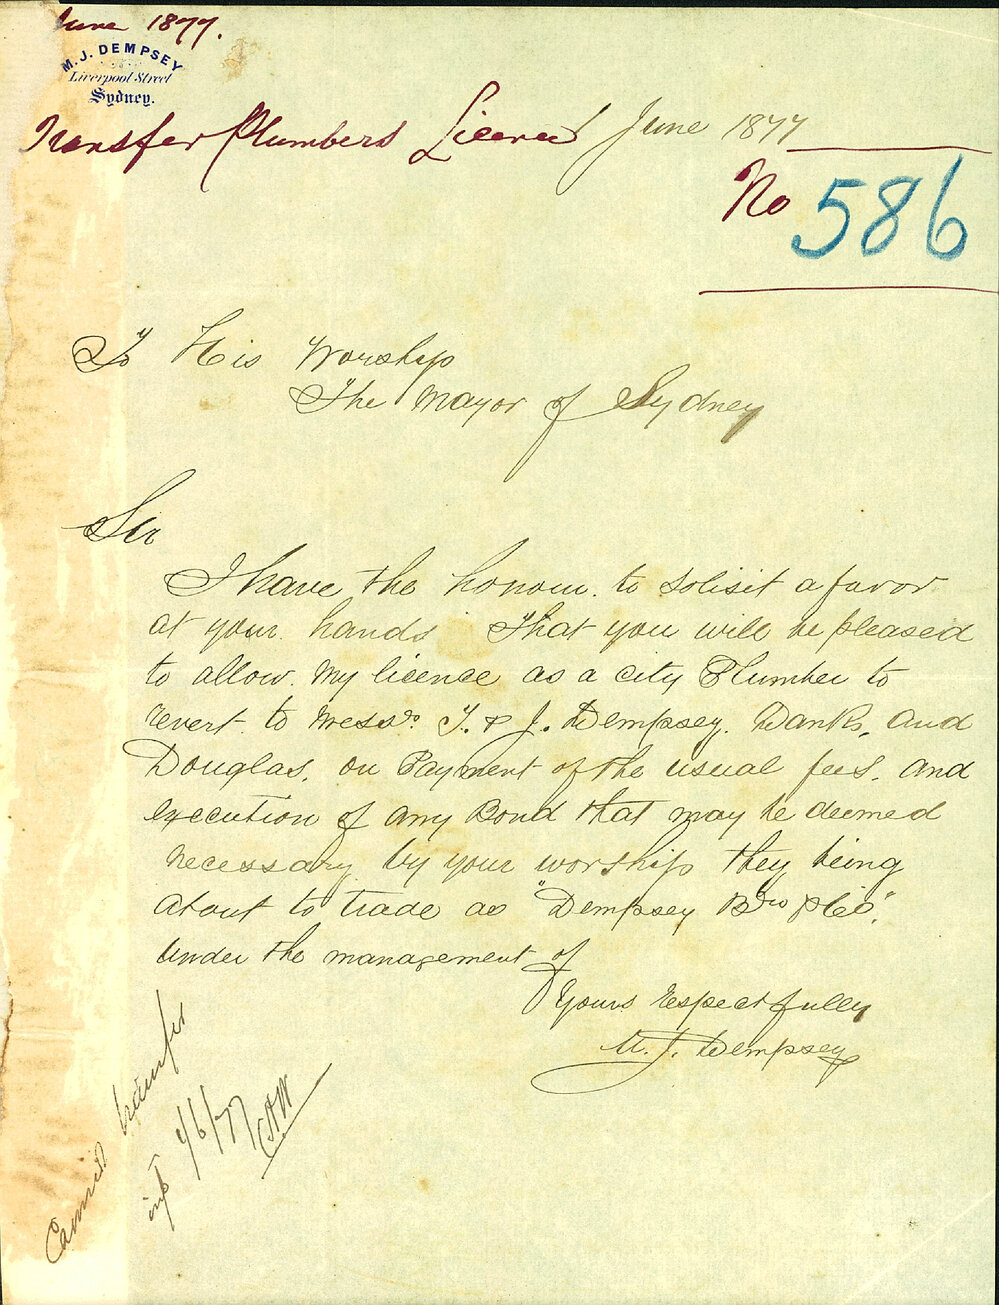 June 1877.
M. J. DEMPSEY
Liverpool Street
Sydney.
Transfer Plumbers Licence
June 1877
No 586
To His Worship
The Mayor of Sydney
Sir
I have the honour to solisit a favor
at your hands That you will be pleased
to allow my licence as a city Plumber to
revert to Messrs. T. & J. Dempsey, Danks, and
Douglas, on Payment of the usual fees, and
execution of any Bond that may be deemed
necessary by your worship they being
about to trade as "Dempsey Bros & Co".
under the management of
Yours respectfully
M. J. Dempsey
Cannot transfer
4/6/77